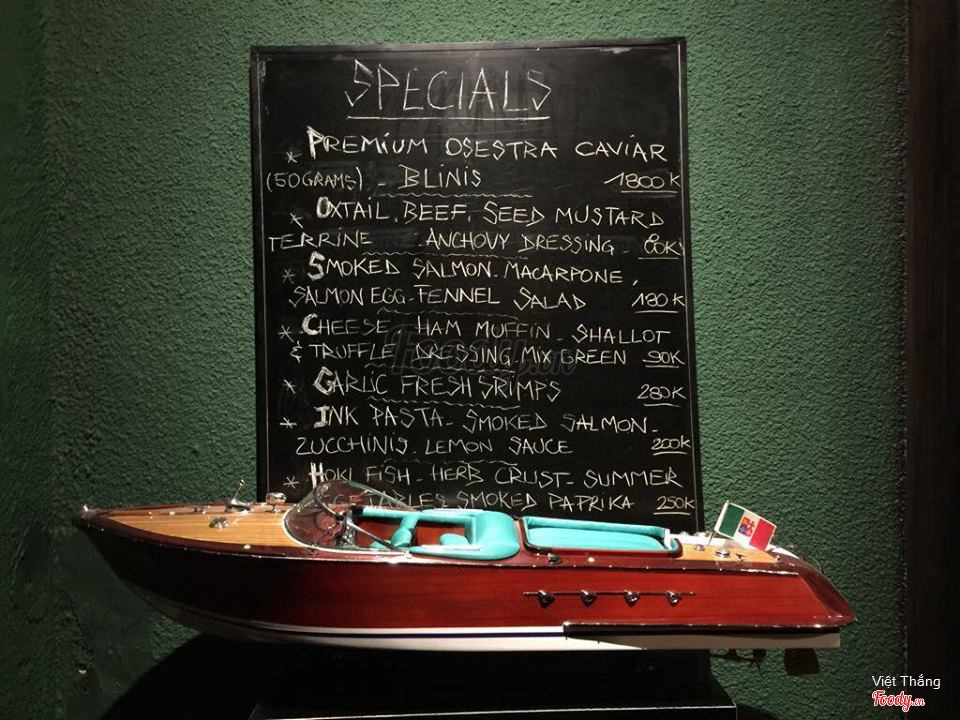 SPECIALS
* PREMIUM OSESTRA CAVIAR
(50GRAMS) - BLINIS 1800K
* OXTAIL, BEEF, SEED MUSTARD
TERRINE ANCHOVY DRESSING - 80K
* SMOKED SALMON - MACARPONE,
SALMON EGG - FENNEL SALAD 180K
* CHEESE HAM MUFFIN - SHALLOT
& TRUFFLE DRESSING MIX GREEN 90K
* GARLIC FRESH SRIMPS 280K
* INK PASTA - SMOKED SALMON -
ZUCCHINIS LEMON SAUCE 200K
* HOKI FISH - HERB CRUST - SUMMER
VEGETABLES SMOKED PAPRIKA 250K
Foody.vn
Việt Thắng
Foody.vn